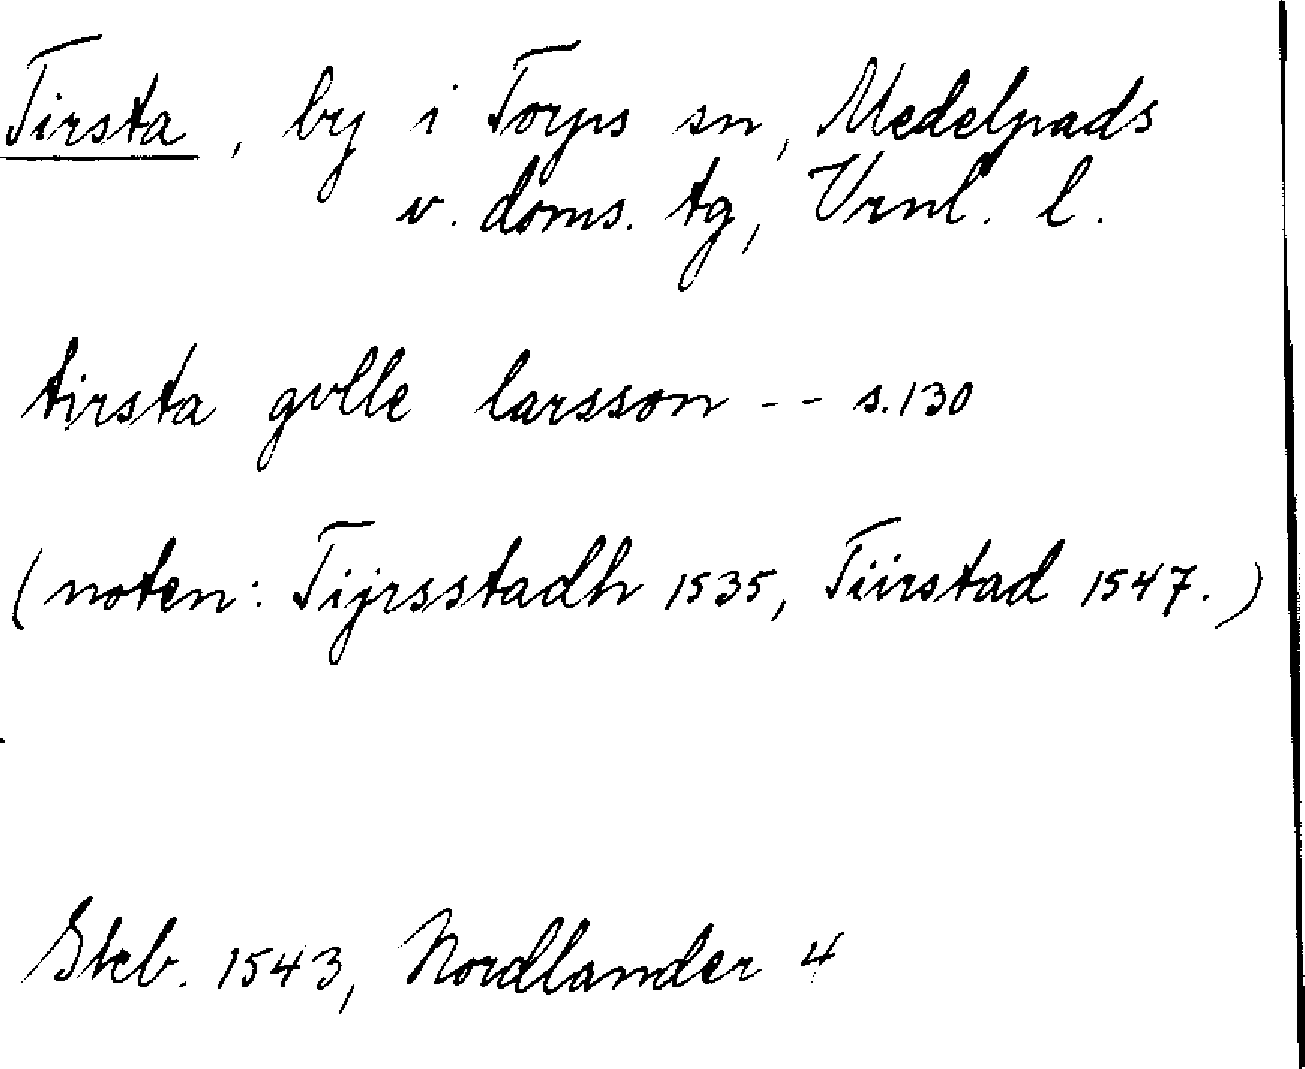 Tirsta, by i Torps sn, Medelpads
v. doms. tg, Vrnl. l.
tirsta gvlle larsson - - s. 130
(noten: Tijrsstadh 1535, Tiirstad 1547.)
Skb. 1543, Nordlander 4